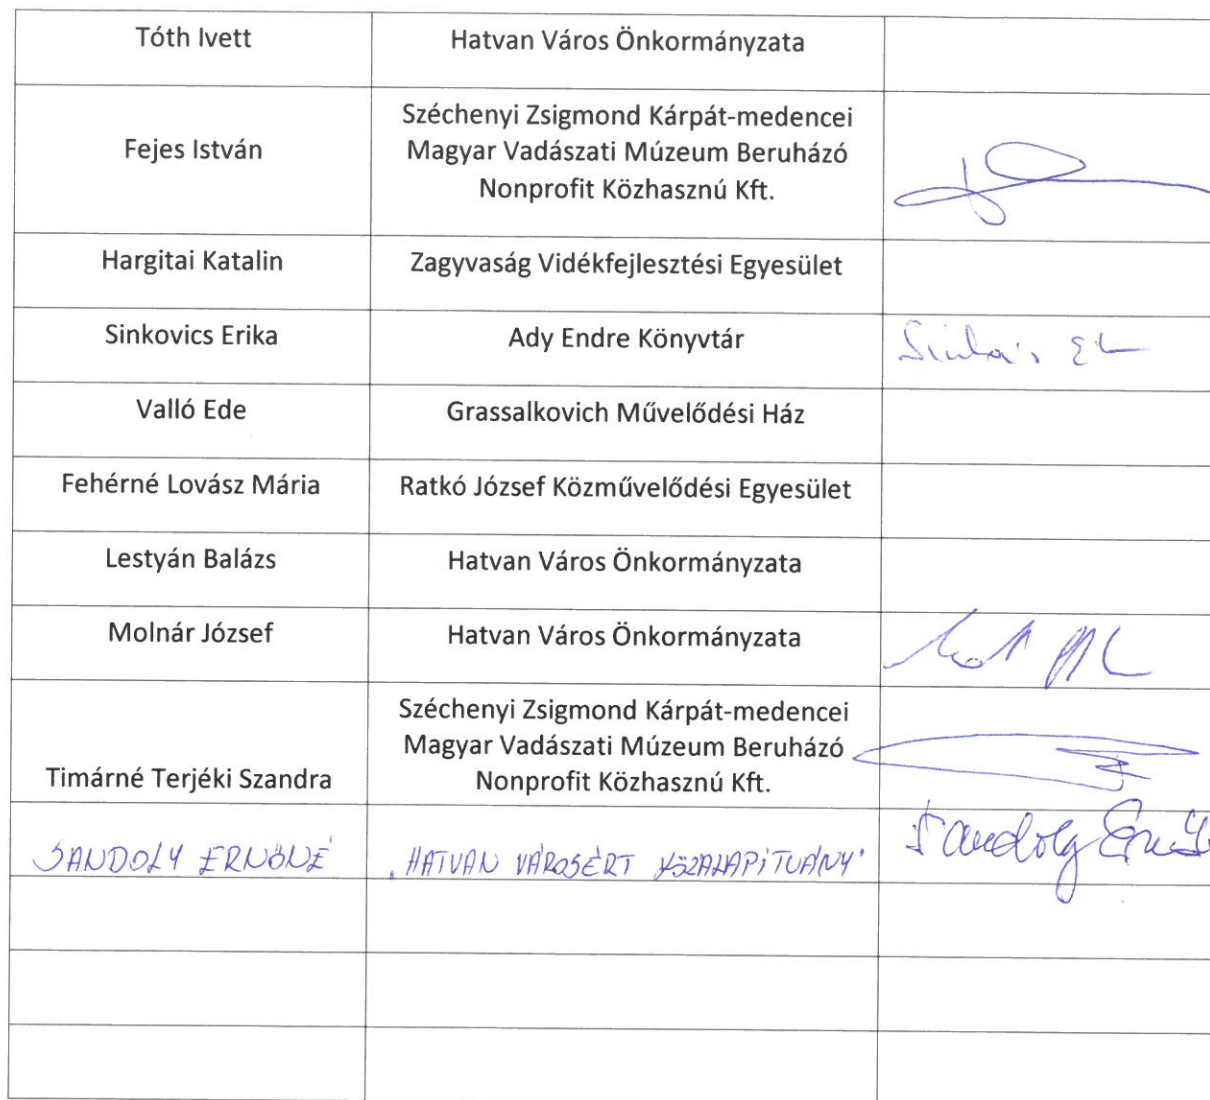 Tóth Ivett
Hatvan Város Önkormányzata
Fejes István
Széchenyi Zsigmond Kárpát-medencei
Magyar Vadászati Múzeum Beruházó
Nonprofit Közhasznú Kft.
Hargitai Katalin
Zagyvaság Vidékfejlesztési Egyesület
Sinkovics Erika
Ady Endre Könyvtár
Valló Ede
Grassalkovich Művelődési Ház
Fehérné Lovász Mária
Ratkó József Közművelődési Egyesület
Lestyán Balázs
Hatvan Város Önkormányzata
Molnár József
Hatvan Város Önkormányzata
Timárné Terjéki Szandra
Széchenyi Zsigmond Kárpát-medencei
Magyar Vadászati Múzeum Beruházó
Nonprofit Közhasznú Kft.
SANDOLY ERNŐNÉ
"HATVAN VÁROSÉRT KÖZALAPÍTVÁNY"